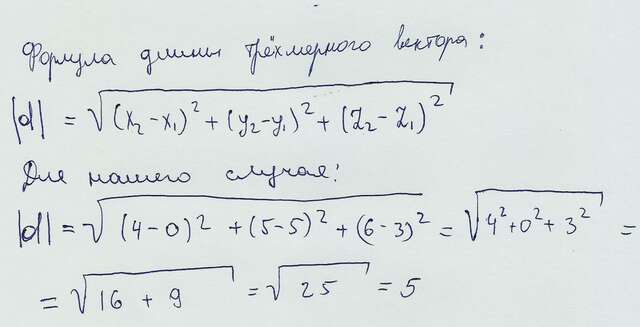 Формула длины трёхмерного вектора:
|d| = √(x₂ - x₁)² + (y₂ - y₁)² + (z₂ - z₁)²
Для нашего случая:
|d| = √(4 - 0)² + (5 - 5)² + (6 - 3)² = √4² + 0² + 3² =
= √16 + 9 = √25 = 5